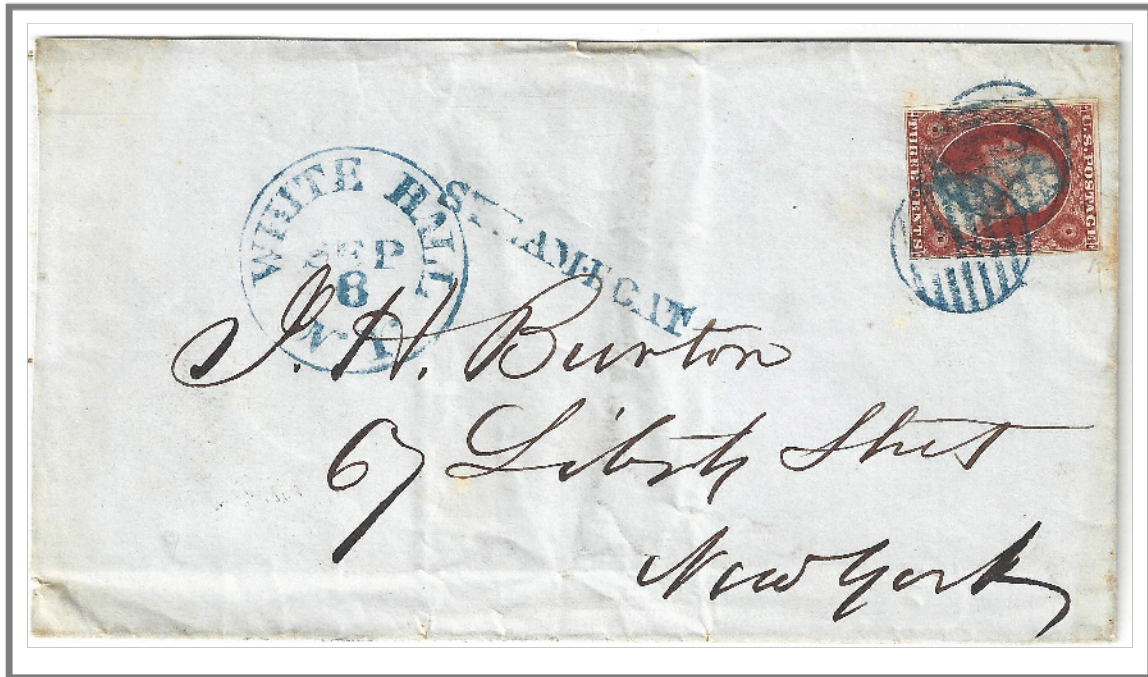 WHITE HALL
SEP
8
N.Y.
STEAMBOAT
U.S. POSTAGE
THREE CENTS
J. H. Burton
67 Liberty Street
New York